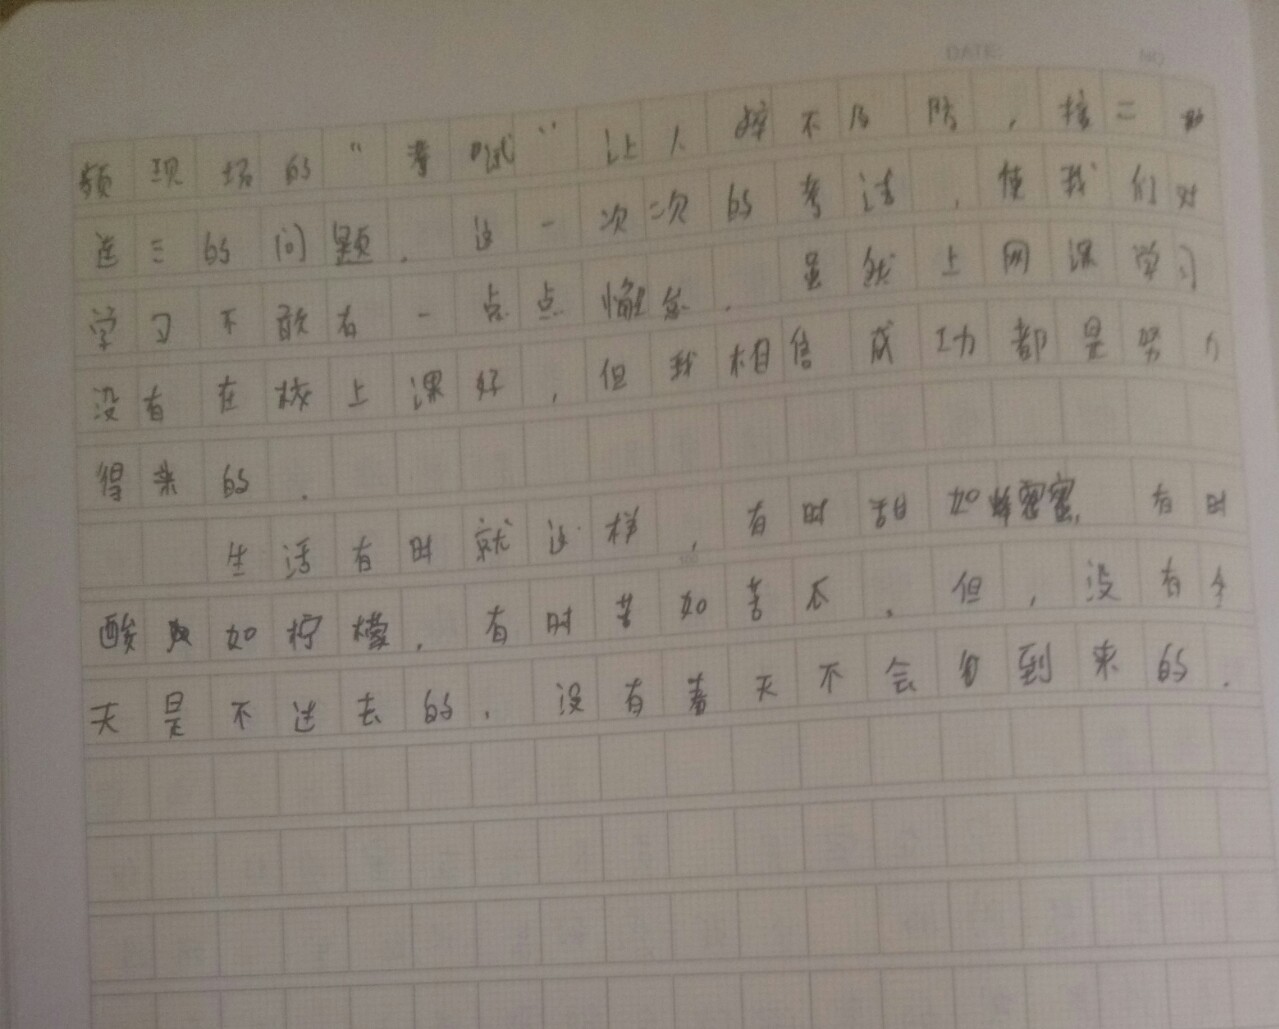 DATE: NO
频现场的“考试”让人猝不及防，接二
连三的问题．这一次次的考试，使我们对
学习不敢有一点点懈怠．虽然上网课学习
没有在校上课好，但我相信成功都是努力
得来的．
生活有时就这样，有时甜如蜂蜜，有时
酸如柠檬，有时苦如苦瓜．但，没有冬
天是不过去的．没有春天不会到来的．